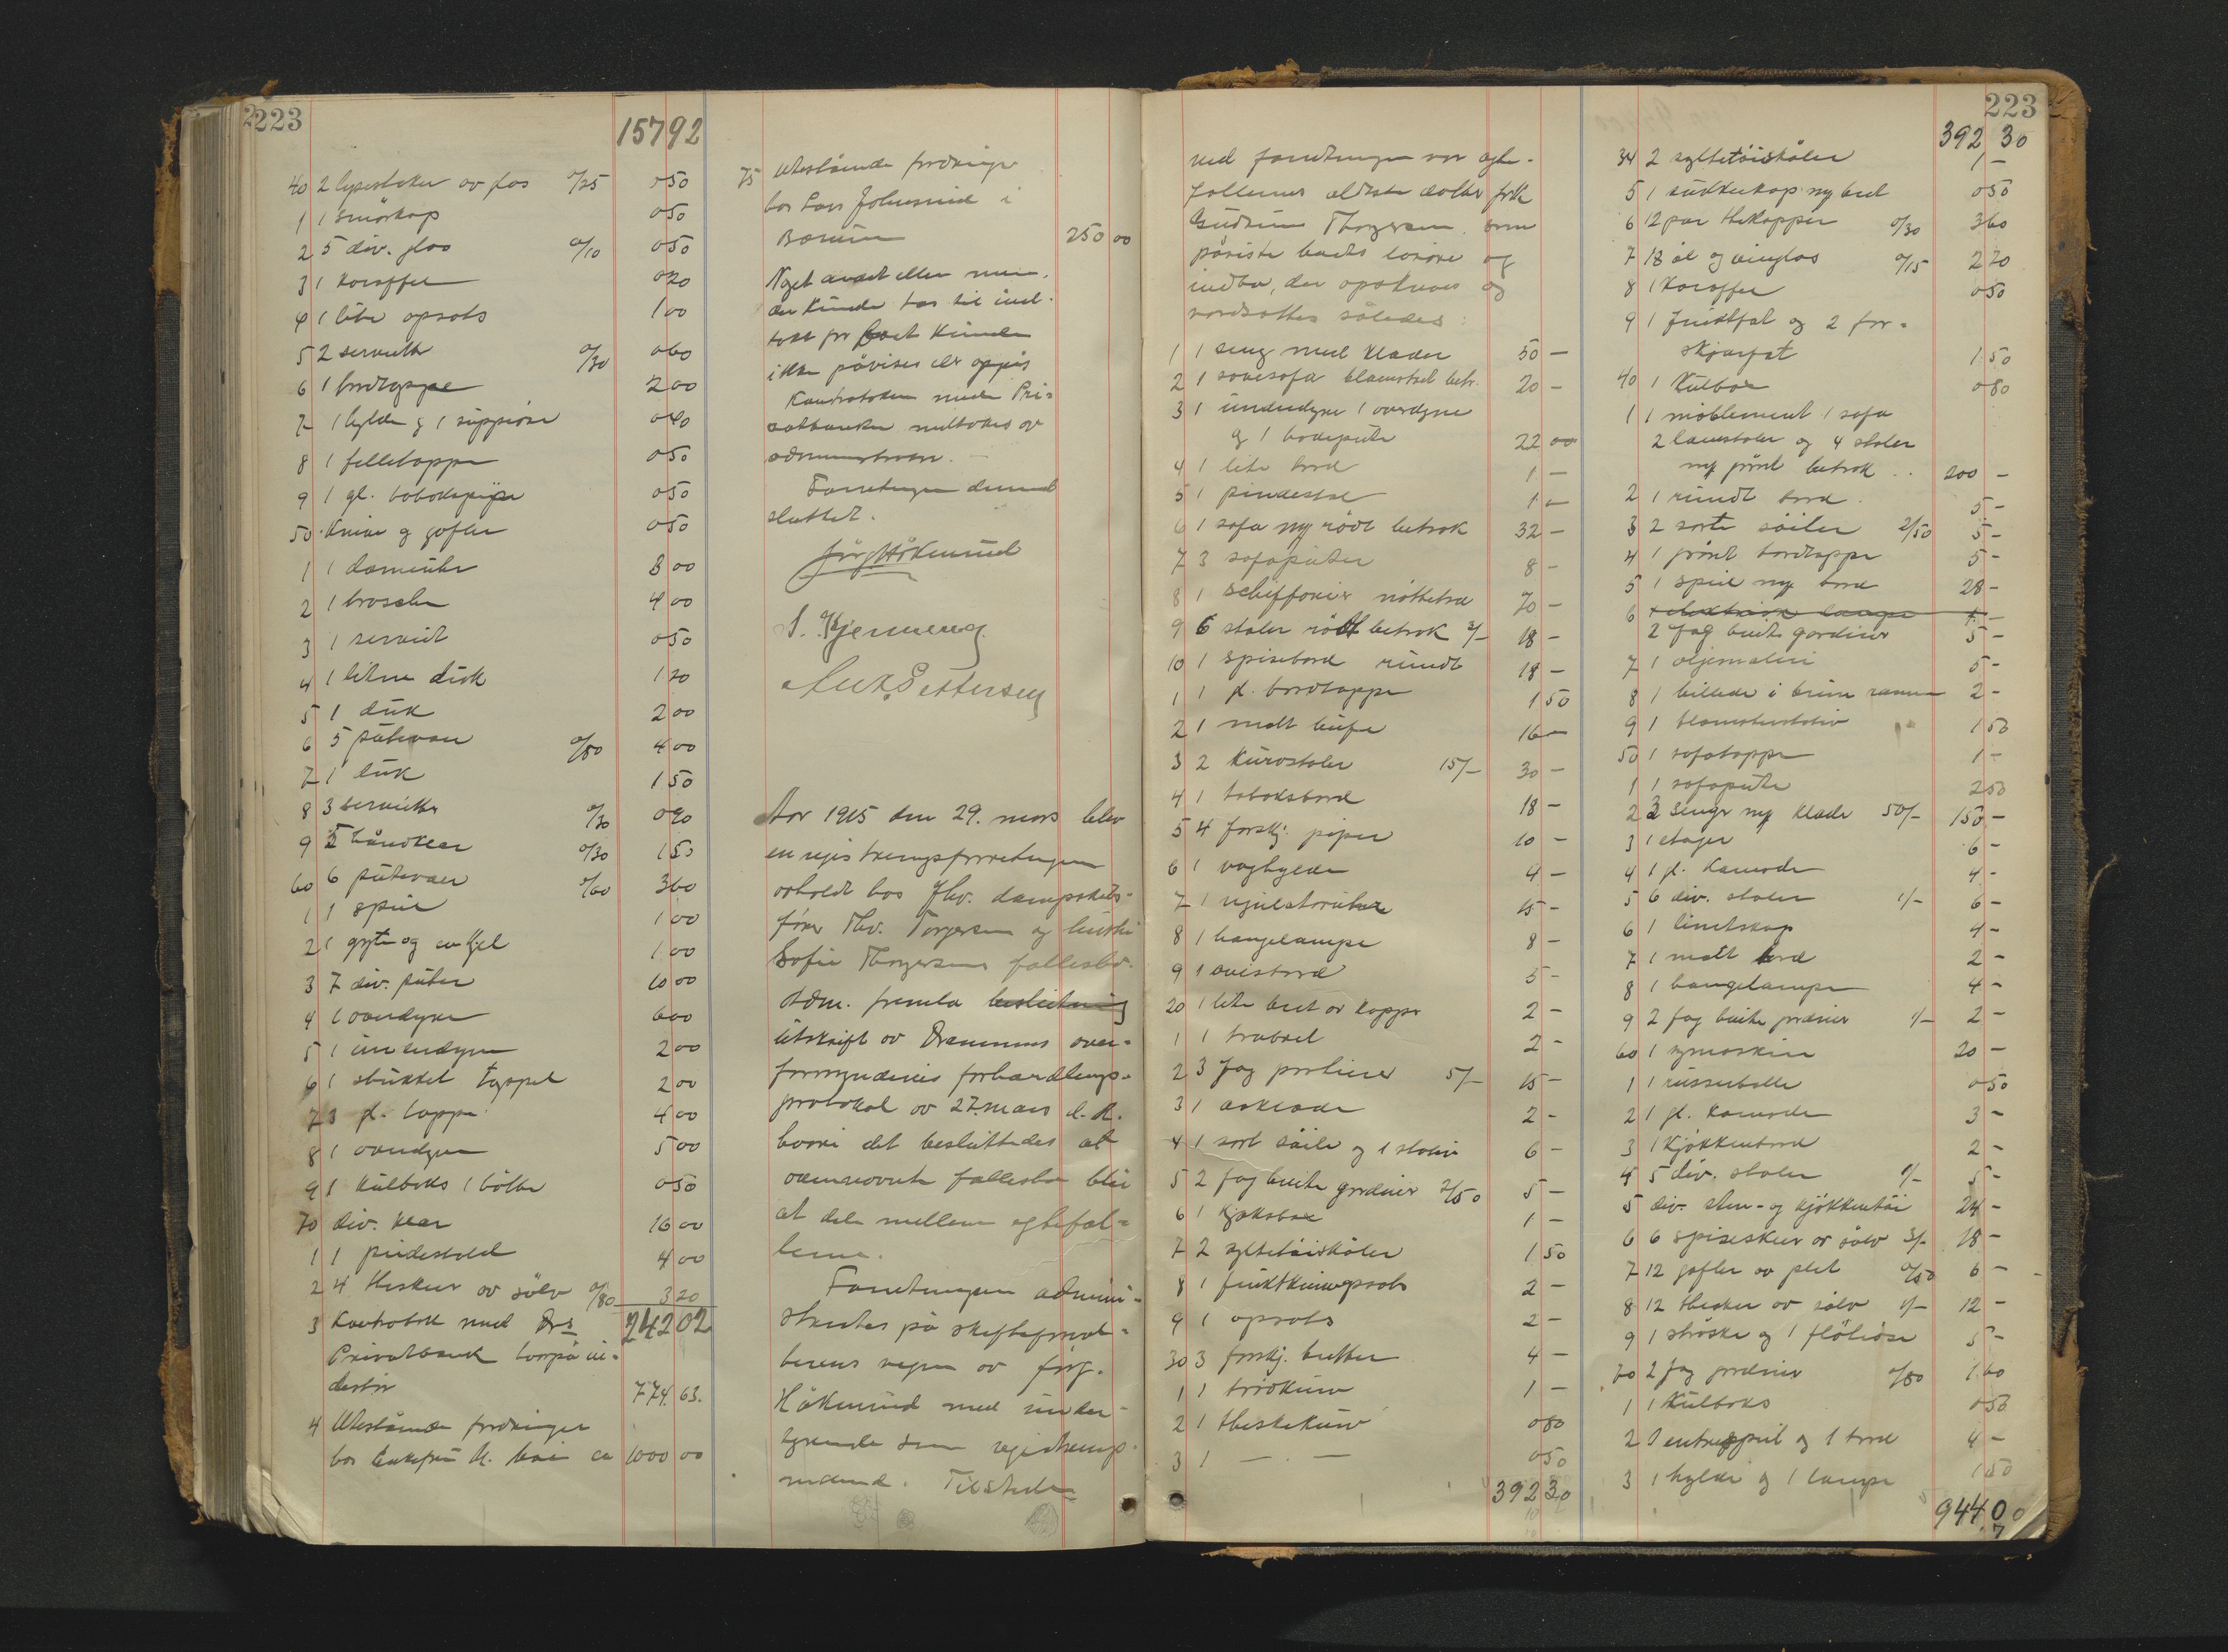 223
15792
40 2 lysestaker av glas 0/25 050
1 1 smörkop 050
2 5 div. glas 0/10 050
3 1 karaffel 020
4 1 lite opsats 100
5 2 servietter 0/30 060
6 1 bordteppe 200
7 1 hylde og 1 suppeöse 040
8 1 filleteppe 050
9 1 gl. tobakspipe 050
50 Kniver og gafler 050
1 1 dameuhr 800
2 1 brosche 400
3 1 serviet 050
4 1 liten disk 120
5 1 duk 200
6 5 putevaar 0/80 400
7 1 duk 150
8 3 servietter 0/30 090
9 5 håndklær 0/30 150
60 6 putevaar 0/60 360
1 1 speil 100
2 1 gryte og en kjel 100
3 7 div. puter 1000
4 1 overdyne 600
5 1 underdyne 200
6 1 stukket teppe 200
7 3 gl. tepper 400
8 1 overdyne 500
9 1 kulboks 1 bötte 050
70 div. klær 1600
1 1 pindestol 400
2 4 theskeer av sölv 0/80 320
3 Kontrabok med Drs 24202
Privatbank hvorpå in-
destår 774.63.
4 Utestående fordringer
hos Enkefru M. ca 1000 00
75 Utestående fordringer
hos Lars Johnsrud i
Bærum 250 00
Noget andet eller mere
der kunde tas til ind-
tekt for boet kunde
ikke påvises eller opgis
Kontraboken med Pri-
vatbanken medtokes av
administrator. —
Forretningen dermed
sluttet.
Jörg Håkenrud
S. Kjenneng
Ant. Pettersen
Aar 1915 den 29. mars blev
en registreringsforretning
avholdt hos fhv. dampskibs-
förer Thv. Torgersen og hustru
Sofie Thorgersens fællesbo.
Adm. fremla beslutning
utskrift av Drammens over-
formynderies forhandlings-
protokol av 27 mars d. A.
hvori det besluttedes at
ovennævnte fællesbo blir
at dele mellem egtefæl-
lerne.
Forretningen admini-
streredes på skifteforval-
terens vegne av förg.
Håkenrud med under-
tegnede som registrerings-
mænd. Tilstede
ved forretningen var egte-
fællernes eldste datter frk
Gudrun Thorgersen som
påviste boets lösöre og
indbo, der opskreves og
verdsattes således:
1 1 seng med klæder 50 —
2 1 sovesofa blomstret betr. 20 —
3 1 underdyne 1 overdyne
og 1 hodepute 22 00
4 1 lite bord 1 —
5 1 pindestol 1 —
6 1 sofa m/ rödt betræk 32 —
7 3 sofaputer 8 —
8 1 scheffonier nöttetræ 70 —
9 6 stoler rödt betræk 3/- 18 —
10 1 spisebord rundt 18 —
1 1 gl. bordteppe 1 50
2 1 malt 16 —
3 2 kurvstoler 15/- 30 —
4 1 tobaksbord 18 —
5 4 forskj. piper 10 —
6 1 væghylde 4 —
7 1 regulatoruhr 15 —
8 1 hængelampe 8 —
9 1 avisbord 5 —
20 1 lite bret av kopper 2 —
1 1 trebret 2 -
2 3 fag portierer 5/- 15 —
3 1 2 -
4 1 sort söile og 1 stativ 6 —
5 2 fag hvite gardiner 2/50 5 —
6 1 kjeksboks 1 —
7 2 syltetöiskåler 1 50
8 1 fruktkurvopsats 2 —
9 1 opsats 2 —
30 3 forskj. bretter 4 —
1 1 brödkurv 1 —
2 1 theskekurv 080
3 1 — — 050
392 30
223
392 30
34 2 syltetöiskåler 1 —
5 1 sukkerkop ny bret 050
6 12 par thekopper 0/30 360
7 18 öl og vinglas 0/15 2 70
8 1 karaffel 050
9 1 fruktfat og 2 for-
skjærfat 1 50
40 1 kulboks 080
1 1 möblement 1 sofa
2 lænestoler og 4 stoler
m/ grönt betræk .. 200 —
2 1 rundt bord 5 -
3 2 sorte söiler 2/50 5 -
4 1 grönt bordteppe 5 -
5 1 speil m/ bord 28 -
6 1 elektrisk lampe
2 fag hvite gardiner 5 -
7 1 oljemaleri 5 -
8 1 billede i brun ramme 2 -
9 1 blomsterstativ 1 50
50 1 sofateppe 1 -
1 1 sofapute 2 50
2 3 senger m/ klæder 50/- 150 -
3 1 etager 6 -
4 1 gl. kamode 4 -
5 6 div. stoler 1/- 6 -
6 1 linetskap 4 -
7 1 malt bord 2 -
8 1 hængelampe 4 -
9 2 fag hvite gardiner 1/- 2 -
60 1 symaskin 20 —
1 1 050
2 1 gl. kamode 3 -
3 1 kjökkenbord 2 -
4 5 div. stoler 1/- 5 -
5 div. sten- og kjökkentöi 24 -
6 6 spiseskeer av sölv 3/- 18 -
7 12 gafler av plet 0/50 6 -
8 12 theskeer av sölv 1/- 12 -
9 1 ströske og 1 flöteöse 5 -
70 2 fag gardiner 0/80 1.60
1 1 kulboks 050
2 1 entrespeil og 1 bord 4 -
3 1 hylde og 1 lampe 1 50
944 00